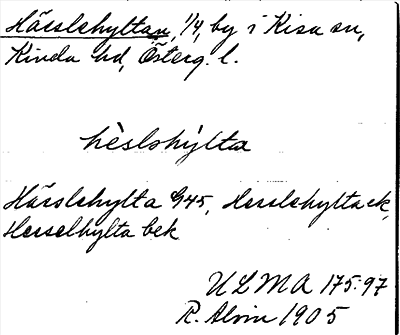 Hässlehyltan, 1/4, by i Kisa sn,
Kinda hd, Österg. l.
hèslohỳlta
Hässlehylta G45, Hesslehylta ek,
Hesselhylta bek
ULMA 175:97
R. Alvin 1905